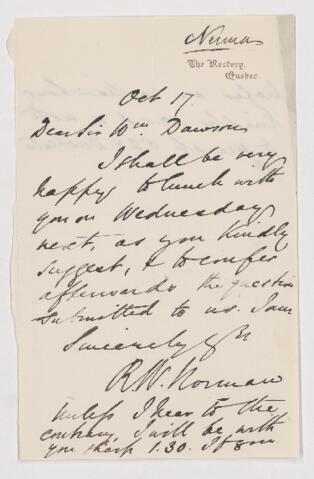 Norman
The Rectory,
Quebec
Oct 17
Dear Sir Wm Dawson
I shall be very
happy to lunch with
you on Wednesday
next, as you kindly
suggest, & to confer
afterwards the question
submitted to us. I am
Sincerely yrs
R. W. Norman
Unless I hear to the
contrary, I will be with
you sharp 1.30. If